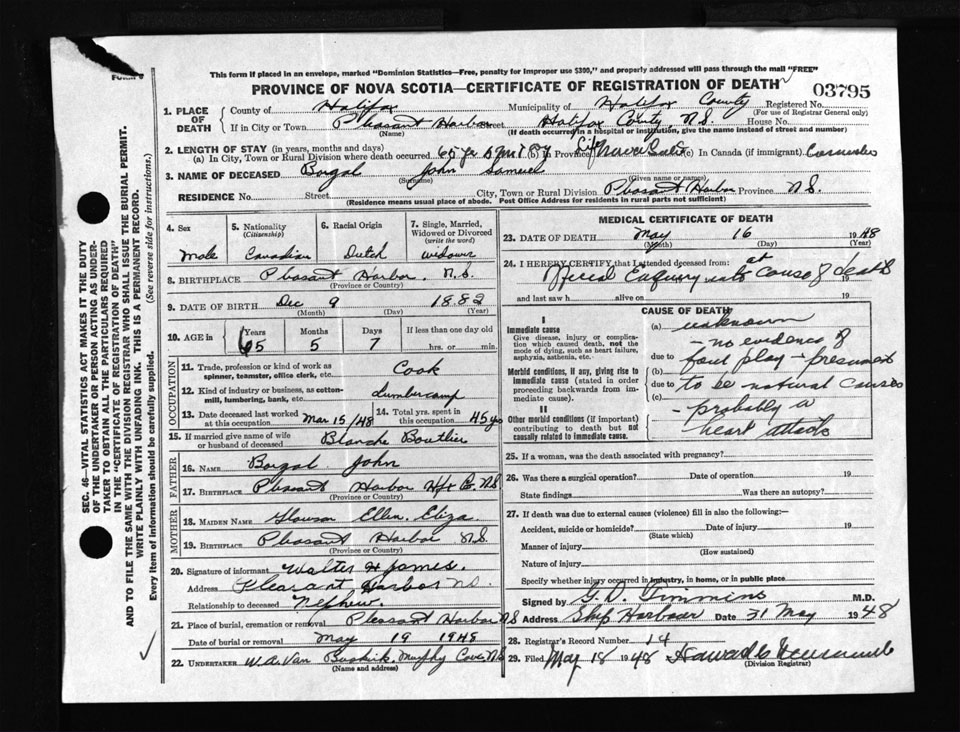 FORM 6
This form if placed in an envelope, marked "Dominion Statistics—Free, penalty for improper use $300," and properly addressed will pass through the mail "FREE"
PROVINCE OF NOVA SCOTIA—CERTIFICATE OF REGISTRATION OF DEATH
03795
1. PLACE OF DEATH
County of Halifax Municipality of Halifax County Registered No.
(For use of Registrar General only)
If in City or Town Pleasant Harbor Street Halifax County, N.S. House No.
(Name) (If death occurred in a hospital or institution, give the name instead of street and number)
2. LENGTH OF STAY (in years, months and days)
(a) In City, Town or Rural Division where death occurred 65 yr 5 (b) In Province Life Nova Scotia (c) In Canada (if immigrant)
3. NAME OF DECEASED Borgal John Samuel
(Surname) (Given name or names)
RESIDENCE No. Street City, Town or Rural Division Pleasant Harbor Province N.S.
(Residence means usual place of abode. Post Office Address for residents in rural parts not sufficient)
4. Sex
Male
5. Nationality
(Citizenship)
Canadian
6. Racial Origin
Dutch
7. Single, Married, Widowed or Divorced
(write the word)
widower
8. BIRTHPLACE Pleasant Harbor N.S.
(Province or Country)
9. DATE OF BIRTH Dec 9 1882
(Month) (Day) (Year)
10. AGE in
Years Months Days If less than one day old
65 5 7 hrs. or min.
OCCUPATION
11. Trade, profession or kind of work as spinner, teamster, office clerk, etc. Cook
12. Kind of industry or business, as cotton-mill, lumbering, bank, etc. Lumbercamp
13. Date deceased last worked at this occupation Mar 15/48
14. Total yrs. spent in this occupation 45 yrs
15. If married give name of wife or husband of deceased Blanche Boutlier
FATHER
16. NAME Borgal John
17. BIRTHPLACE Pleasant Harbor Hfx Co. N.S
(Province or Country)
MOTHER
18. MAIDEN NAME Ellen Eliza
19. BIRTHPLACE Pleasant Harbor N.S.
(Province or Country)
20. Signature of informant Walter H James.
Address Pleasant Harbor N.S.
Relationship to deceased Nephew.
21. Place of burial, cremation or removal Pleasant Harbor N.S
Date of burial or removal May 19 1948
22. UNDERTAKER W.A. Van Buskirk. Murphy Cove, N.S
(Name and address)
MEDICAL CERTIFICATE OF DEATH
23. DATE OF DEATH May 16 1948
(Month) (Day) (Year)
24. I HEREBY CERTIFY that I attended deceased from: at
Official Enquiry into cause of death 19
and last saw h alive on 19
CAUSE OF DEATH
I
Immediate cause
Give disease, injury or complication which caused death, not the mode of dying, such as heart failure, asphyxia, asthenia, etc.
Morbid conditions, if any, giving rise to immediate cause (stated in order proceeding backwards from immediate cause)
II
Other morbid conditions (if important) contributing to death but not causally related to immediate cause.
(a) unknown
- no evidence of
due to foul play - presumed
(b)
due to to be natural causes
(c)
- probably a
heart attack
25. If a woman, was the death associated with pregnancy?
26. Was there a surgical operation? Date of operation 19
State findings Was there an autopsy?
27. If death was due to external causes (violence) fill in also the following:—
Accident, suicide or homicide? Date of injury 19
(State which)
Manner of injury
(How sustained)
Nature of injury
Specify whether injury occurred in industry, in home, or in public place
Signed by G. D. Timmins M.D.
Address Ship Harbour Date 31 May 1948
28. Registrar's Record Number 14
29. Filed May 18 1948 Howard
(Division Registrar)
SEC. 46—VITAL STATISTICS ACT MAKES IT THE DUTY
OF THE UNDERTAKER OR PERSON ACTING AS UNDERTAKER TO OBTAIN ALL THE PARTICULARS REQUIRED
IN THE "CERTIFICATE OF REGISTRATION OF DEATH"
AND TO FILE THE SAME WITH THE DIVISION REGISTRAR WHO SHALL ISSUE THE BURIAL PERMIT.
WRITE PLAINLY WITH UNFADING INK. THIS IS A PERMANENT RECORD.
Every item of information should be carefully supplied. (See reverse side for instructions.)